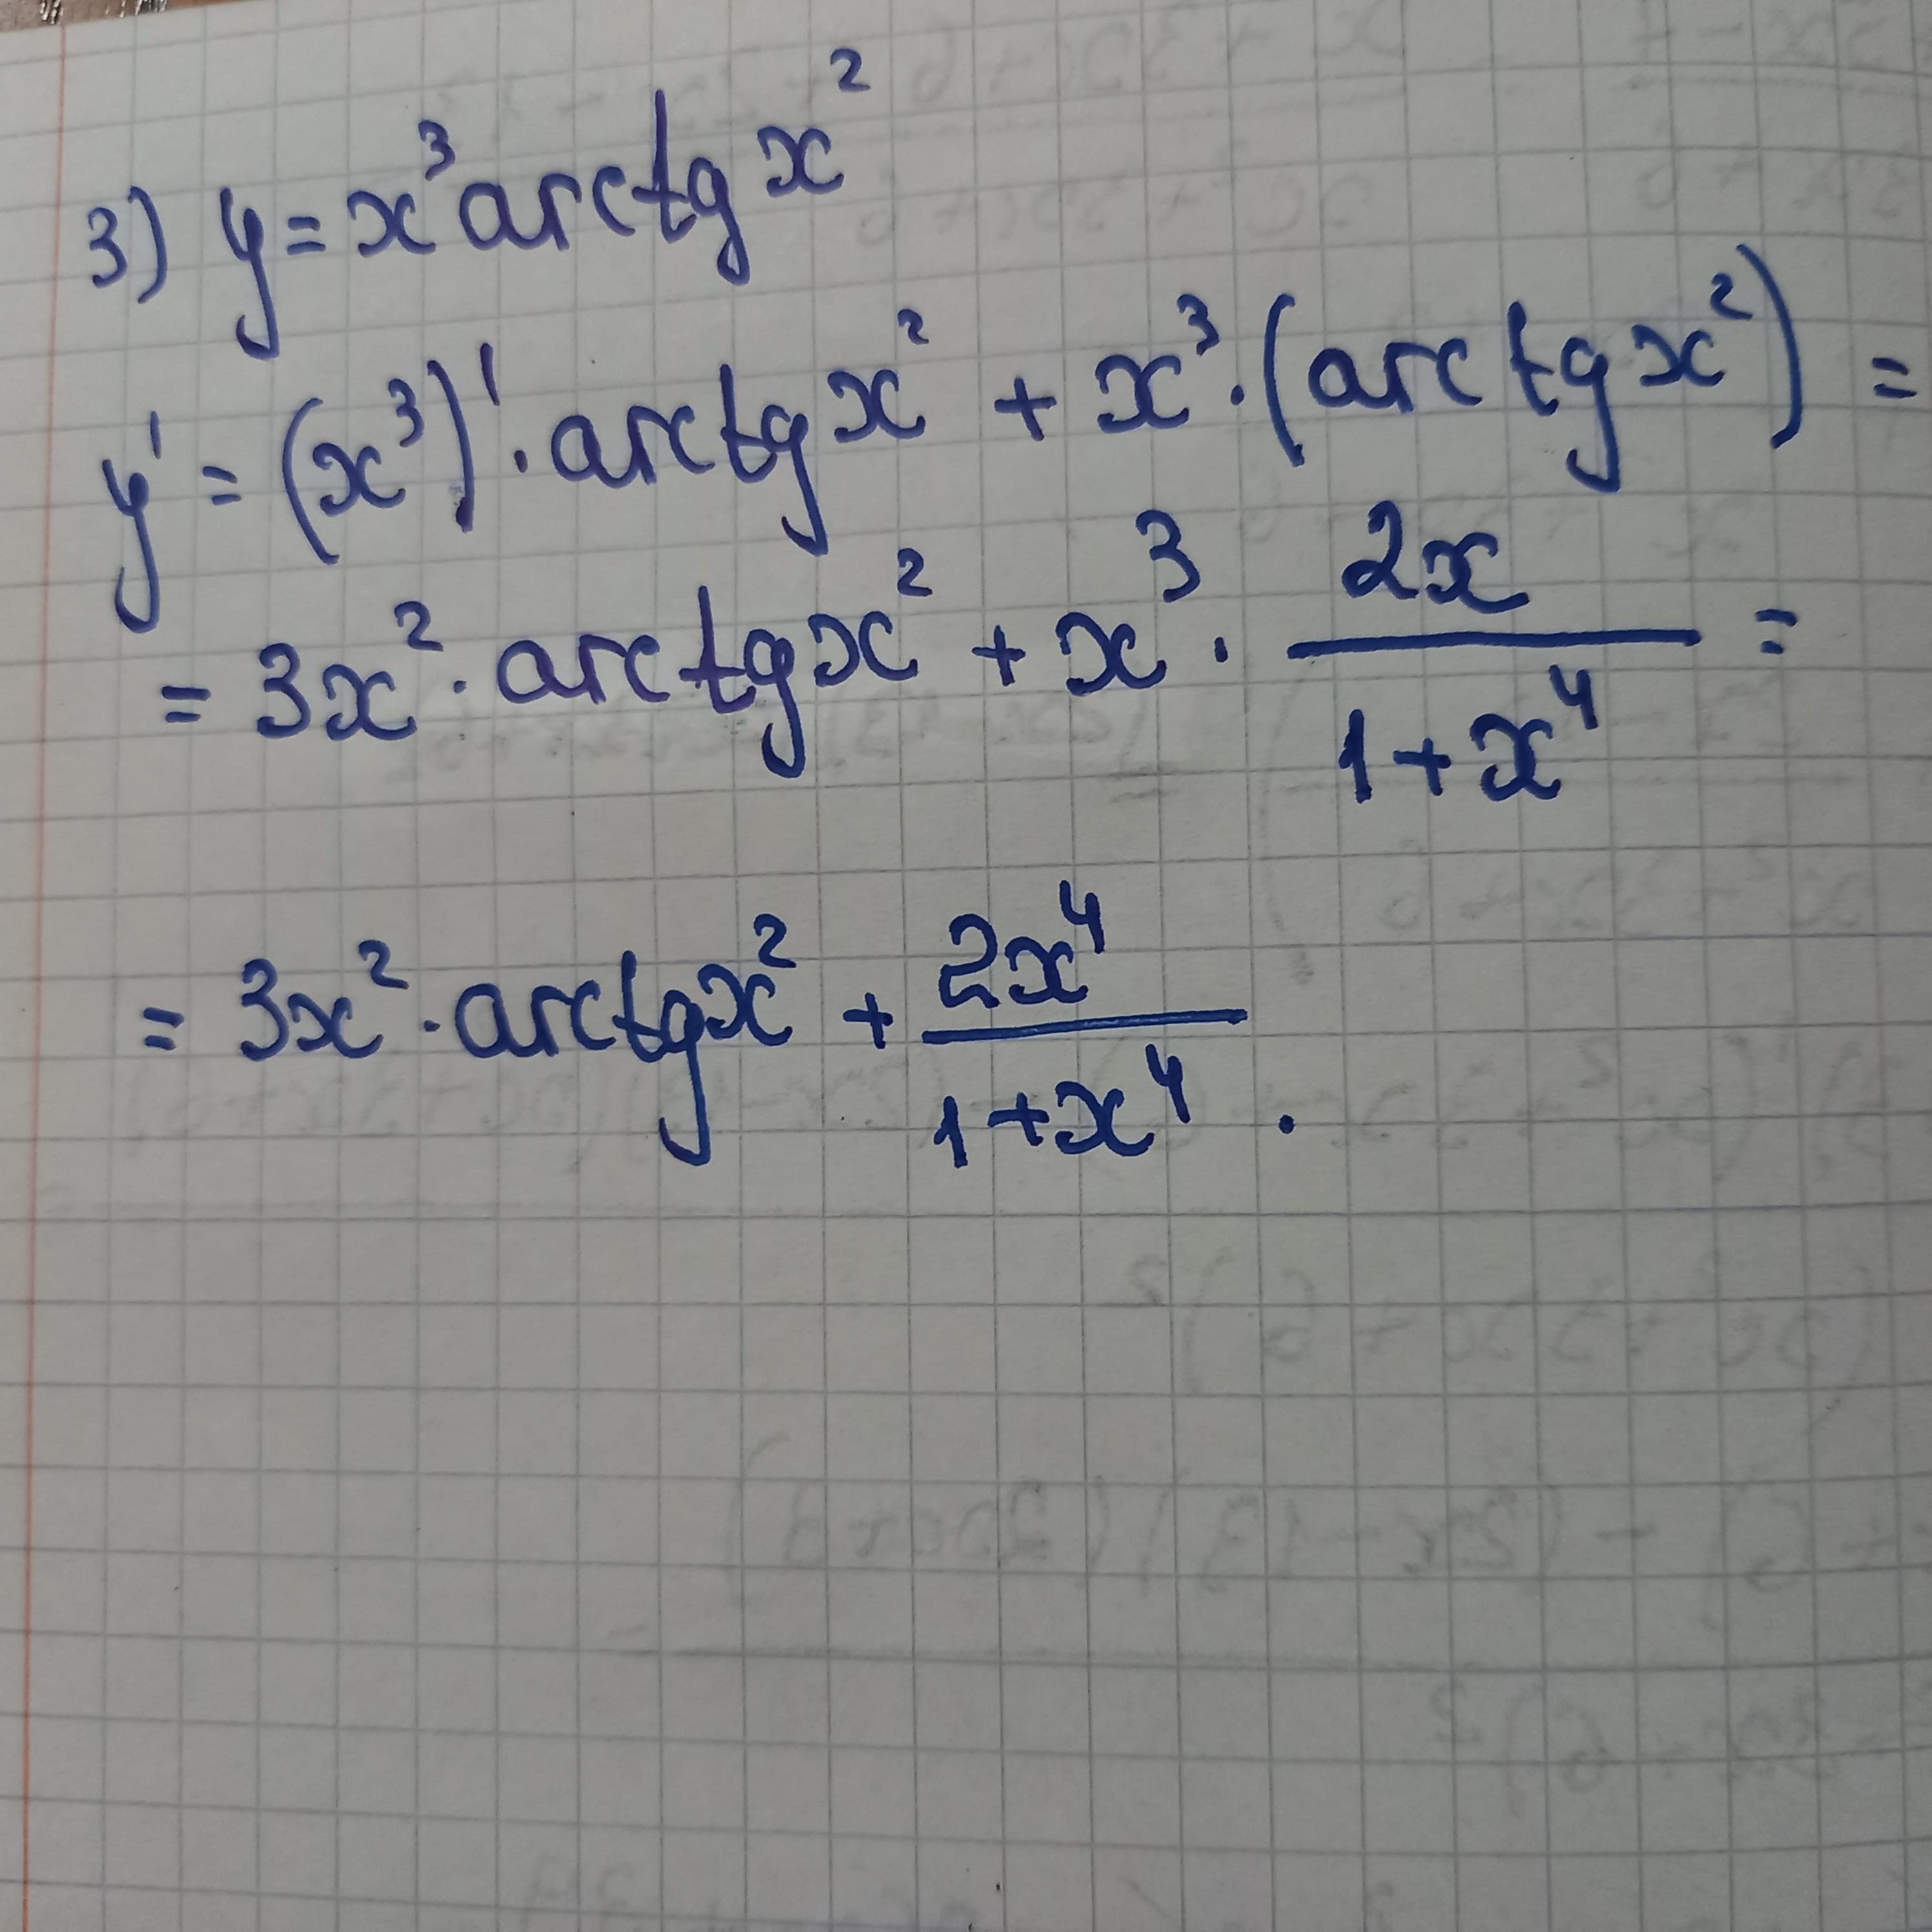 3) y = x³ arctg x²
y' = (x³)' · arctg x² + x³ · (arctg x²) =
= 3x² · arctg x² + x³ · 2x / 1+x⁴ =
= 3x² · arctg x² + 2x⁴ / 1+x⁴ .